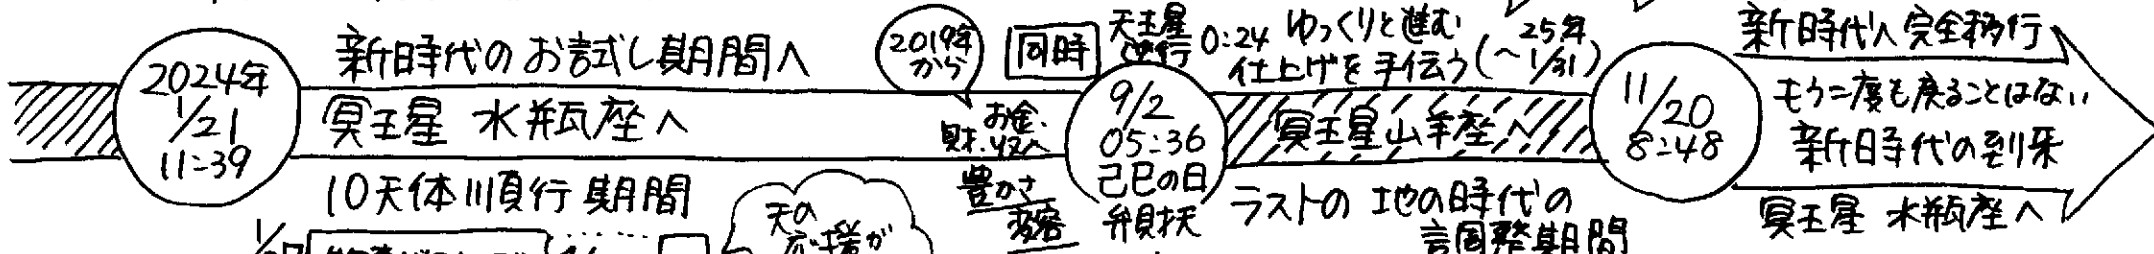 2024年
1/21
11:39
新時代のお試し期間へ
冥王星 水瓶座へ
10天体順行期間
天の
応援が
2019年
から
お金、
財、収入
豊かさ
変容
同時
天王星
逆行
0:24 ゆっくりと進む
仕上げを手伝う(~25年1/31)
9/2
05:36
己巳の日
弁財天
冥王星山羊座へ
ラストの 地の時代の
調整期間
11/20
8:48
新時代へ完全移行
もう二度も戻ることはない
新時代の到来
冥王星 水瓶座へ